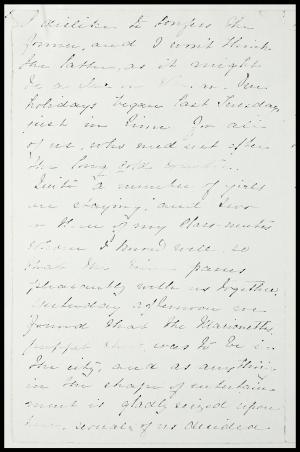 I dislike to confess the
former, and I won't think
the latter, as it might
be a
holidays began last Tuesday
just in time for all
of us, who need rest after
the long cold
Quite a number of girls
are staying, and two
or three of my class-mates
whom I know well, so
that the time passes
pleasantly with us together.
Yesterday afternoon we
found that the Marionettes
puppet show was to be in
the city, and as anything
in the shape of entertain-
ment is gladly seized upon
here, several of us decided